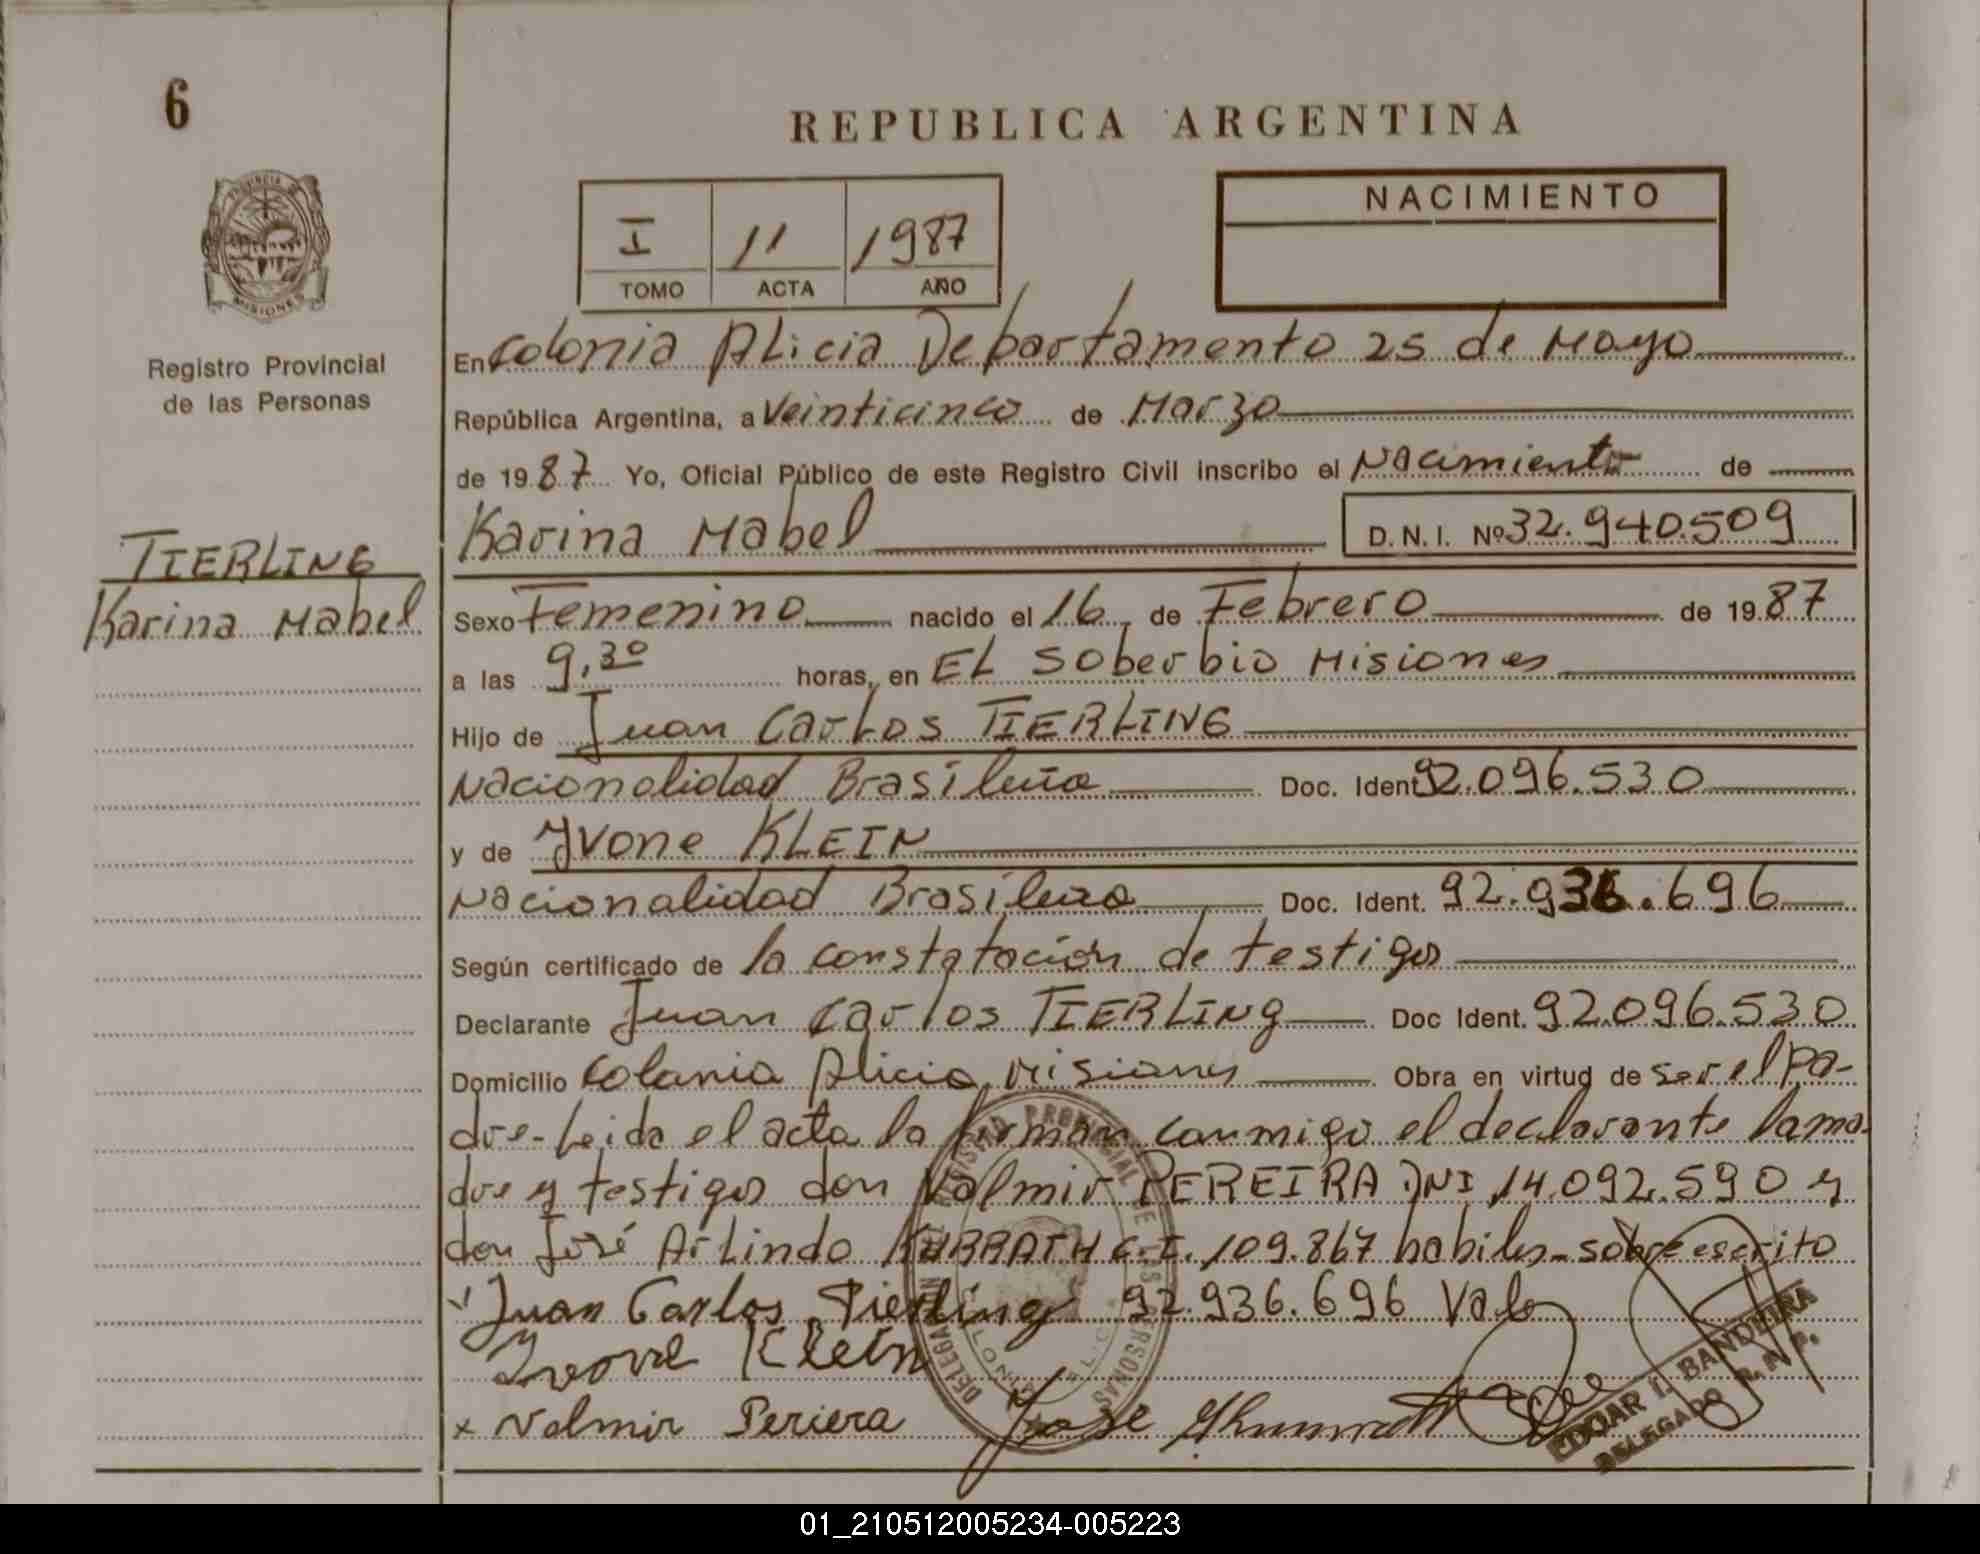 6
REPUBLICA ARGENTINA
PROVINCIA DE
MISIONES
Registro Provincial
de las Personas
I 11 1987
TOMO ACTA AÑO
NACIMIENTO
En Colonia Alicia Departamento 25 de Mayo
República Argentina, a Veinticinco de Marzo
de 1987 Yo, Oficial Público de este Registro Civil inscribo el Nacimiento de
Karina Mabel D. N. I. Nº 32.940.509
TIERLING
Karina Mabel
Sexo Femenino nacido el 16 de Febrero de 1987
a las 9,30 horas, en EL Soberbio Misiones
Hijo de Juan Carlos TIERLING
Nacionalidad Brasileña Doc. Ident. 92.096.530
y de Yvone KLEIN
Nacionalidad Brasileña Doc. Ident. 92.936.696
Según certificado de la constatación de testigos
Declarante Juan Carlos TIERLING Doc Ident. 92.096.530
Domicilio Colonia Alicia Misiones Obra en virtud de ser el pa-
dre- Leida el acta la firman conmigo el declarante la ma-
dre y testigos don Valmir PEREIRA DNI 14.092.590 y
don José Arlindo C.I. 109.867 habiles- sobre escrito
Juan Carlos Tierling 92.936.696 Vale
Ivone Klein
x Valmir Periera Jose
EDGAR I. BANDEIRA
DELEGADO R.N.P.
01_210512005234-005223